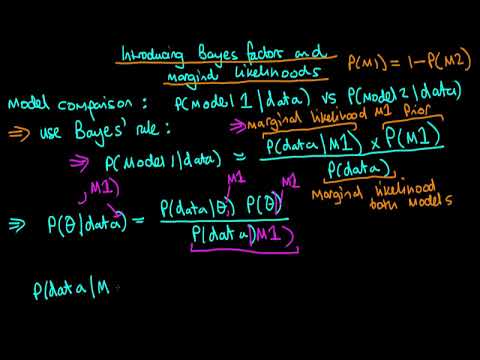 Introducing Bayes factors and
marginal likelihoods
P(M1) = 1-P(M2)
Model comparison : P(Model 1 | data) vs P(Model 2 | data)
⇒ use Bayes' rule :
⇒ marginal likelihood M1 Prior
⇒ P(Model 1 | data) = P(data | M1) × P(M1)
P(data)
marginal likelihood
both models
, M1) , M1 | M1
⇒ P(θ | data) = P(data | θ) P(θ)
P(data) | M1)
P(data | M